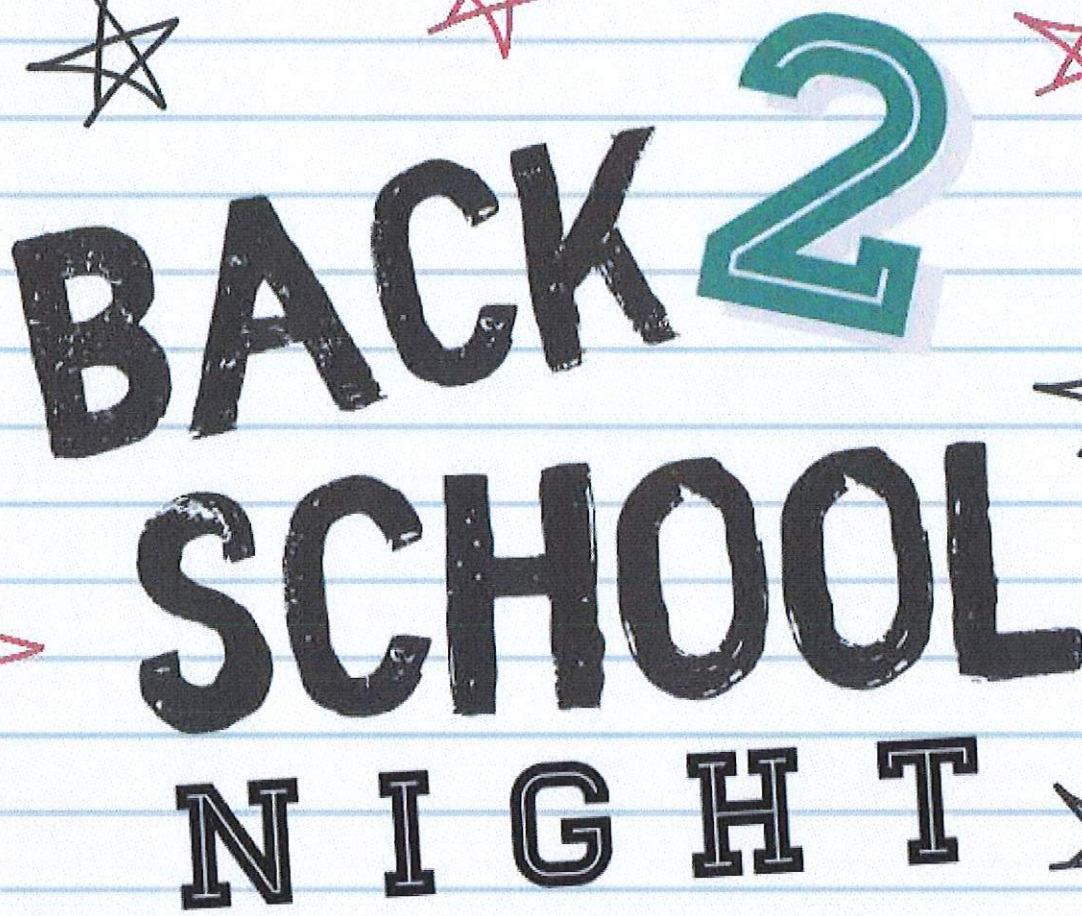 BACK 2
SCHOOL
NIGHT